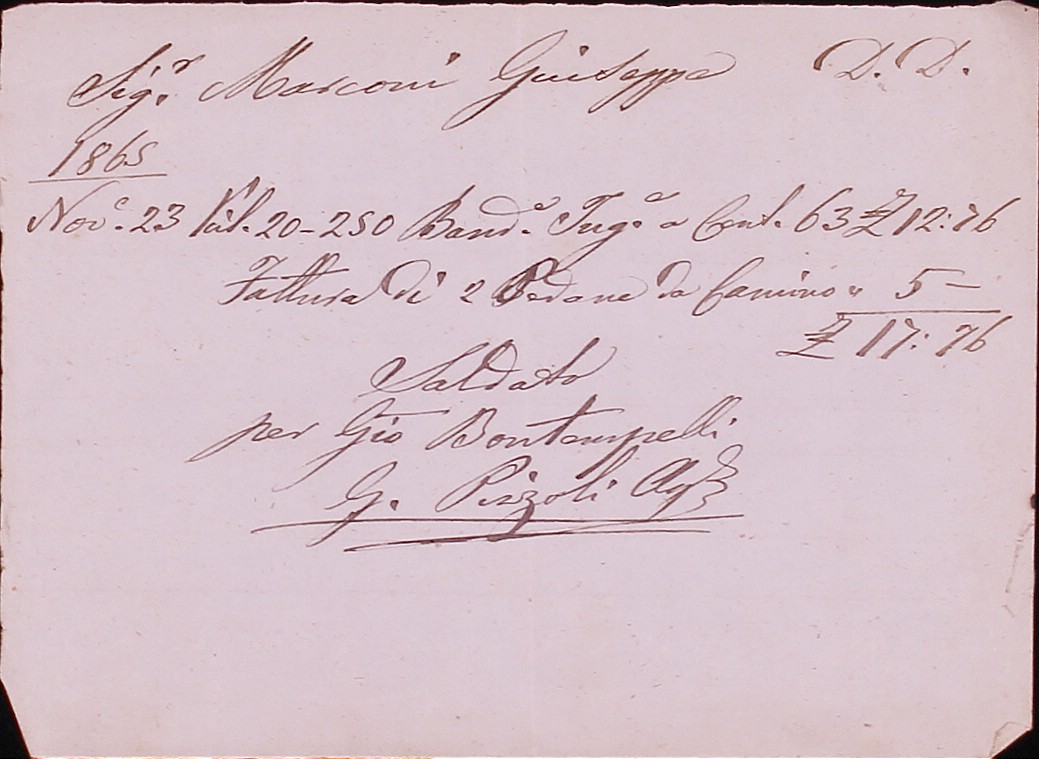 Sig.r Marconi Giuseppe D. D.
1865
Nov.e 23 Kil. 20-250 Band.e Ing.e a Cent. 63 £ 12:76
Fattura di 2 Pedane da Camino " 5 —
£ 17:76
Saldato
per Gio Bontempelli
G. Pizzoli Ag